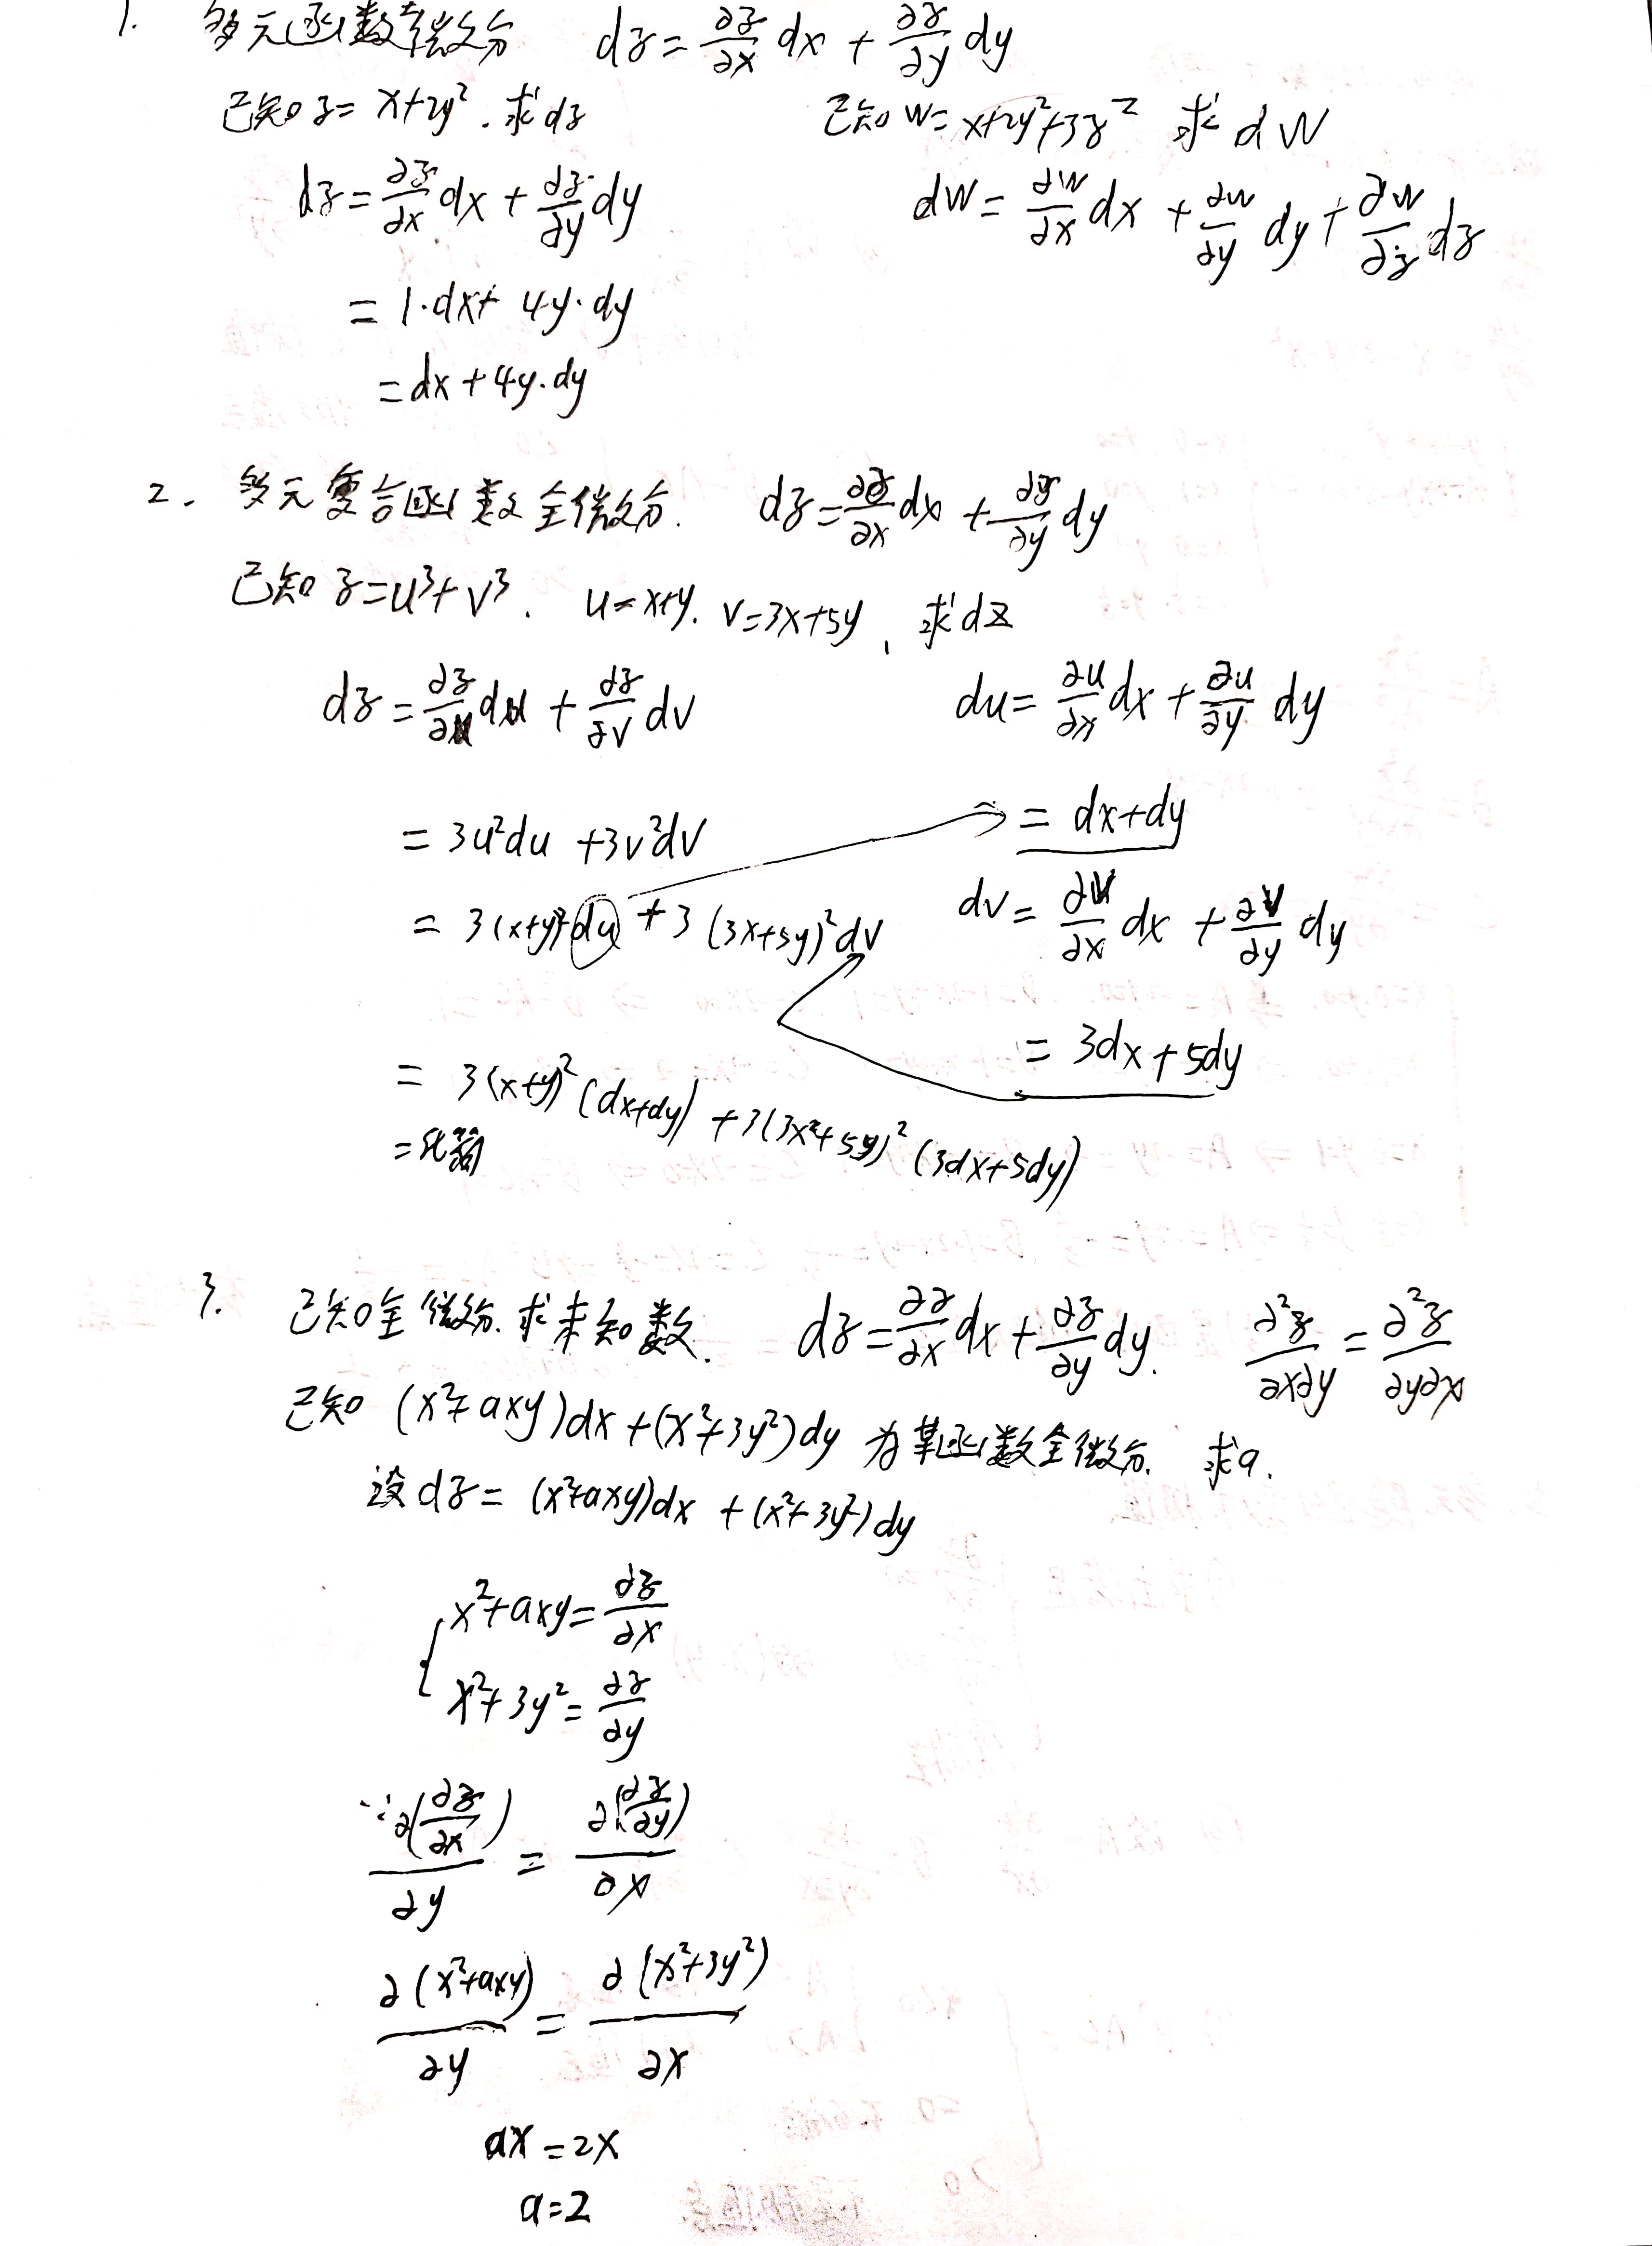 1. 多元函数全微分 dz = ∂z/∂x dx + ∂z/∂y dy
已知 z = x+2y². 求dz
dz = ∂z/∂x dx + ∂z/∂y dy
= 1·dx + 4y·dy
= dx + 4y·dy
已知 w = x+2y²+3z² 求 dw
dw = ∂w/∂x dx + ∂w/∂y dy + ∂w/∂z dz
2. 多元复合函数全微分. dz = ∂z/∂x dx + ∂z/∂y dy
已知 z = u³+v³. u = x+y. v = 3x+5y, 求dz
dz = ∂z/∂u du + ∂z/∂v dv
= 3u²du + 3v²dv
= 3(x+y)²du + 3(3x+5y)²dv
= 3(x+y)²(dx+dy) + 3(3x+5y)²(3dx+5dy)
du = ∂u/∂x dx + ∂u/∂y dy
= dx+dy
dv = ∂v/∂x dx + ∂v/∂y dy
= 3dx + 5dy
3. 已知全微分. 求未知数. dz = ∂z/∂x dx + ∂z/∂y dy. ∂²z/∂x∂y = ∂²z/∂y∂x
已知 (x²+axy)dx + (x²+3y²)dy 为某函数全微分. 求a.
设 dz = (x²+axy)dx + (x²+3y²)dy
{ x²+axy = ∂z/∂x
x²+3y² = ∂z/∂y
∵ ∂(∂z/∂x)/∂y = ∂(∂z/∂y)/∂x
∂(x²+axy)/∂y = ∂(x²+3y²)/∂x
ax = 2x
a = 2